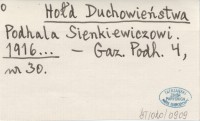 o Hołd Duchowieństwa
Podhala Sienkiewiczowi.
1916... — Gaz. Podh. 4,
nr 30.